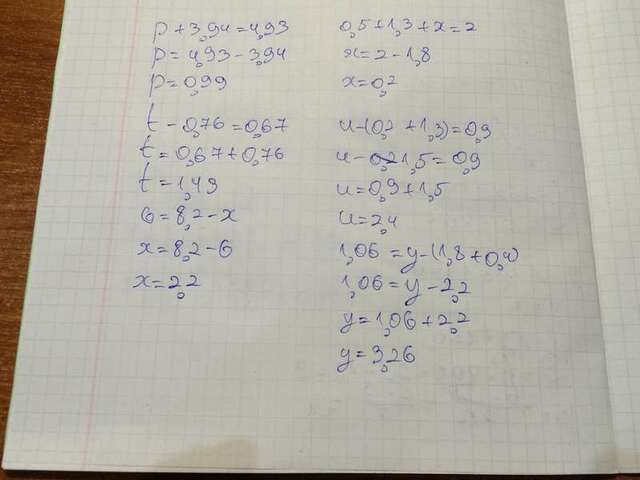 p+3,94=4,93
p=4,93-3,94
p=0,99
t-0,76=0,67
t=0,67+0,76
t=1,43
6=8,2-x
x=8,2-6
x=2,2
0,5+1,3+x=2
x=2-1,8
x=0,2
u-(0,2+1,3)=0,9
u-1,5=0,9
u=0,9+1,5
u=2,4
1,06=y-(1,8+0,4)
1,06=y-2,2
y=1,06+2,2
y=3,26